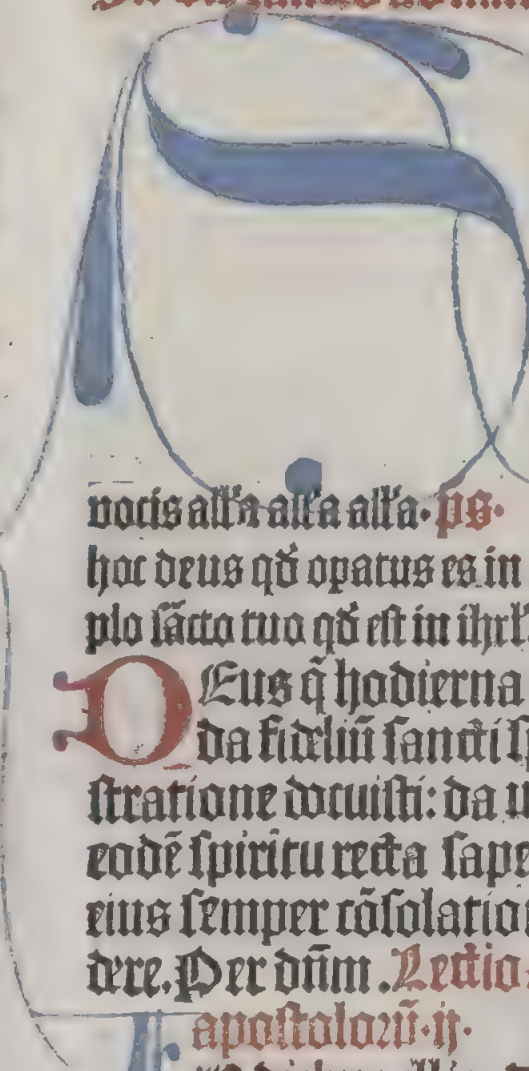 vocis all'a all'a all'a. ps.
hoc deus qđ opatus es in
plo sācto tuo qđ est in ihrl'
DEus q̄ hodierna
da fideliū sancti sp
stratione docuisti: da
eodē spiritu recta sape
eius semper cōsolatio
dere. Per dn̄m. Lectio
apostoloꝝū. ij.